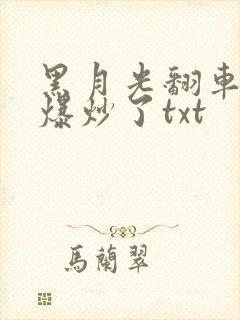 黑月光翻車
爆炒了txt
馬蘭翠